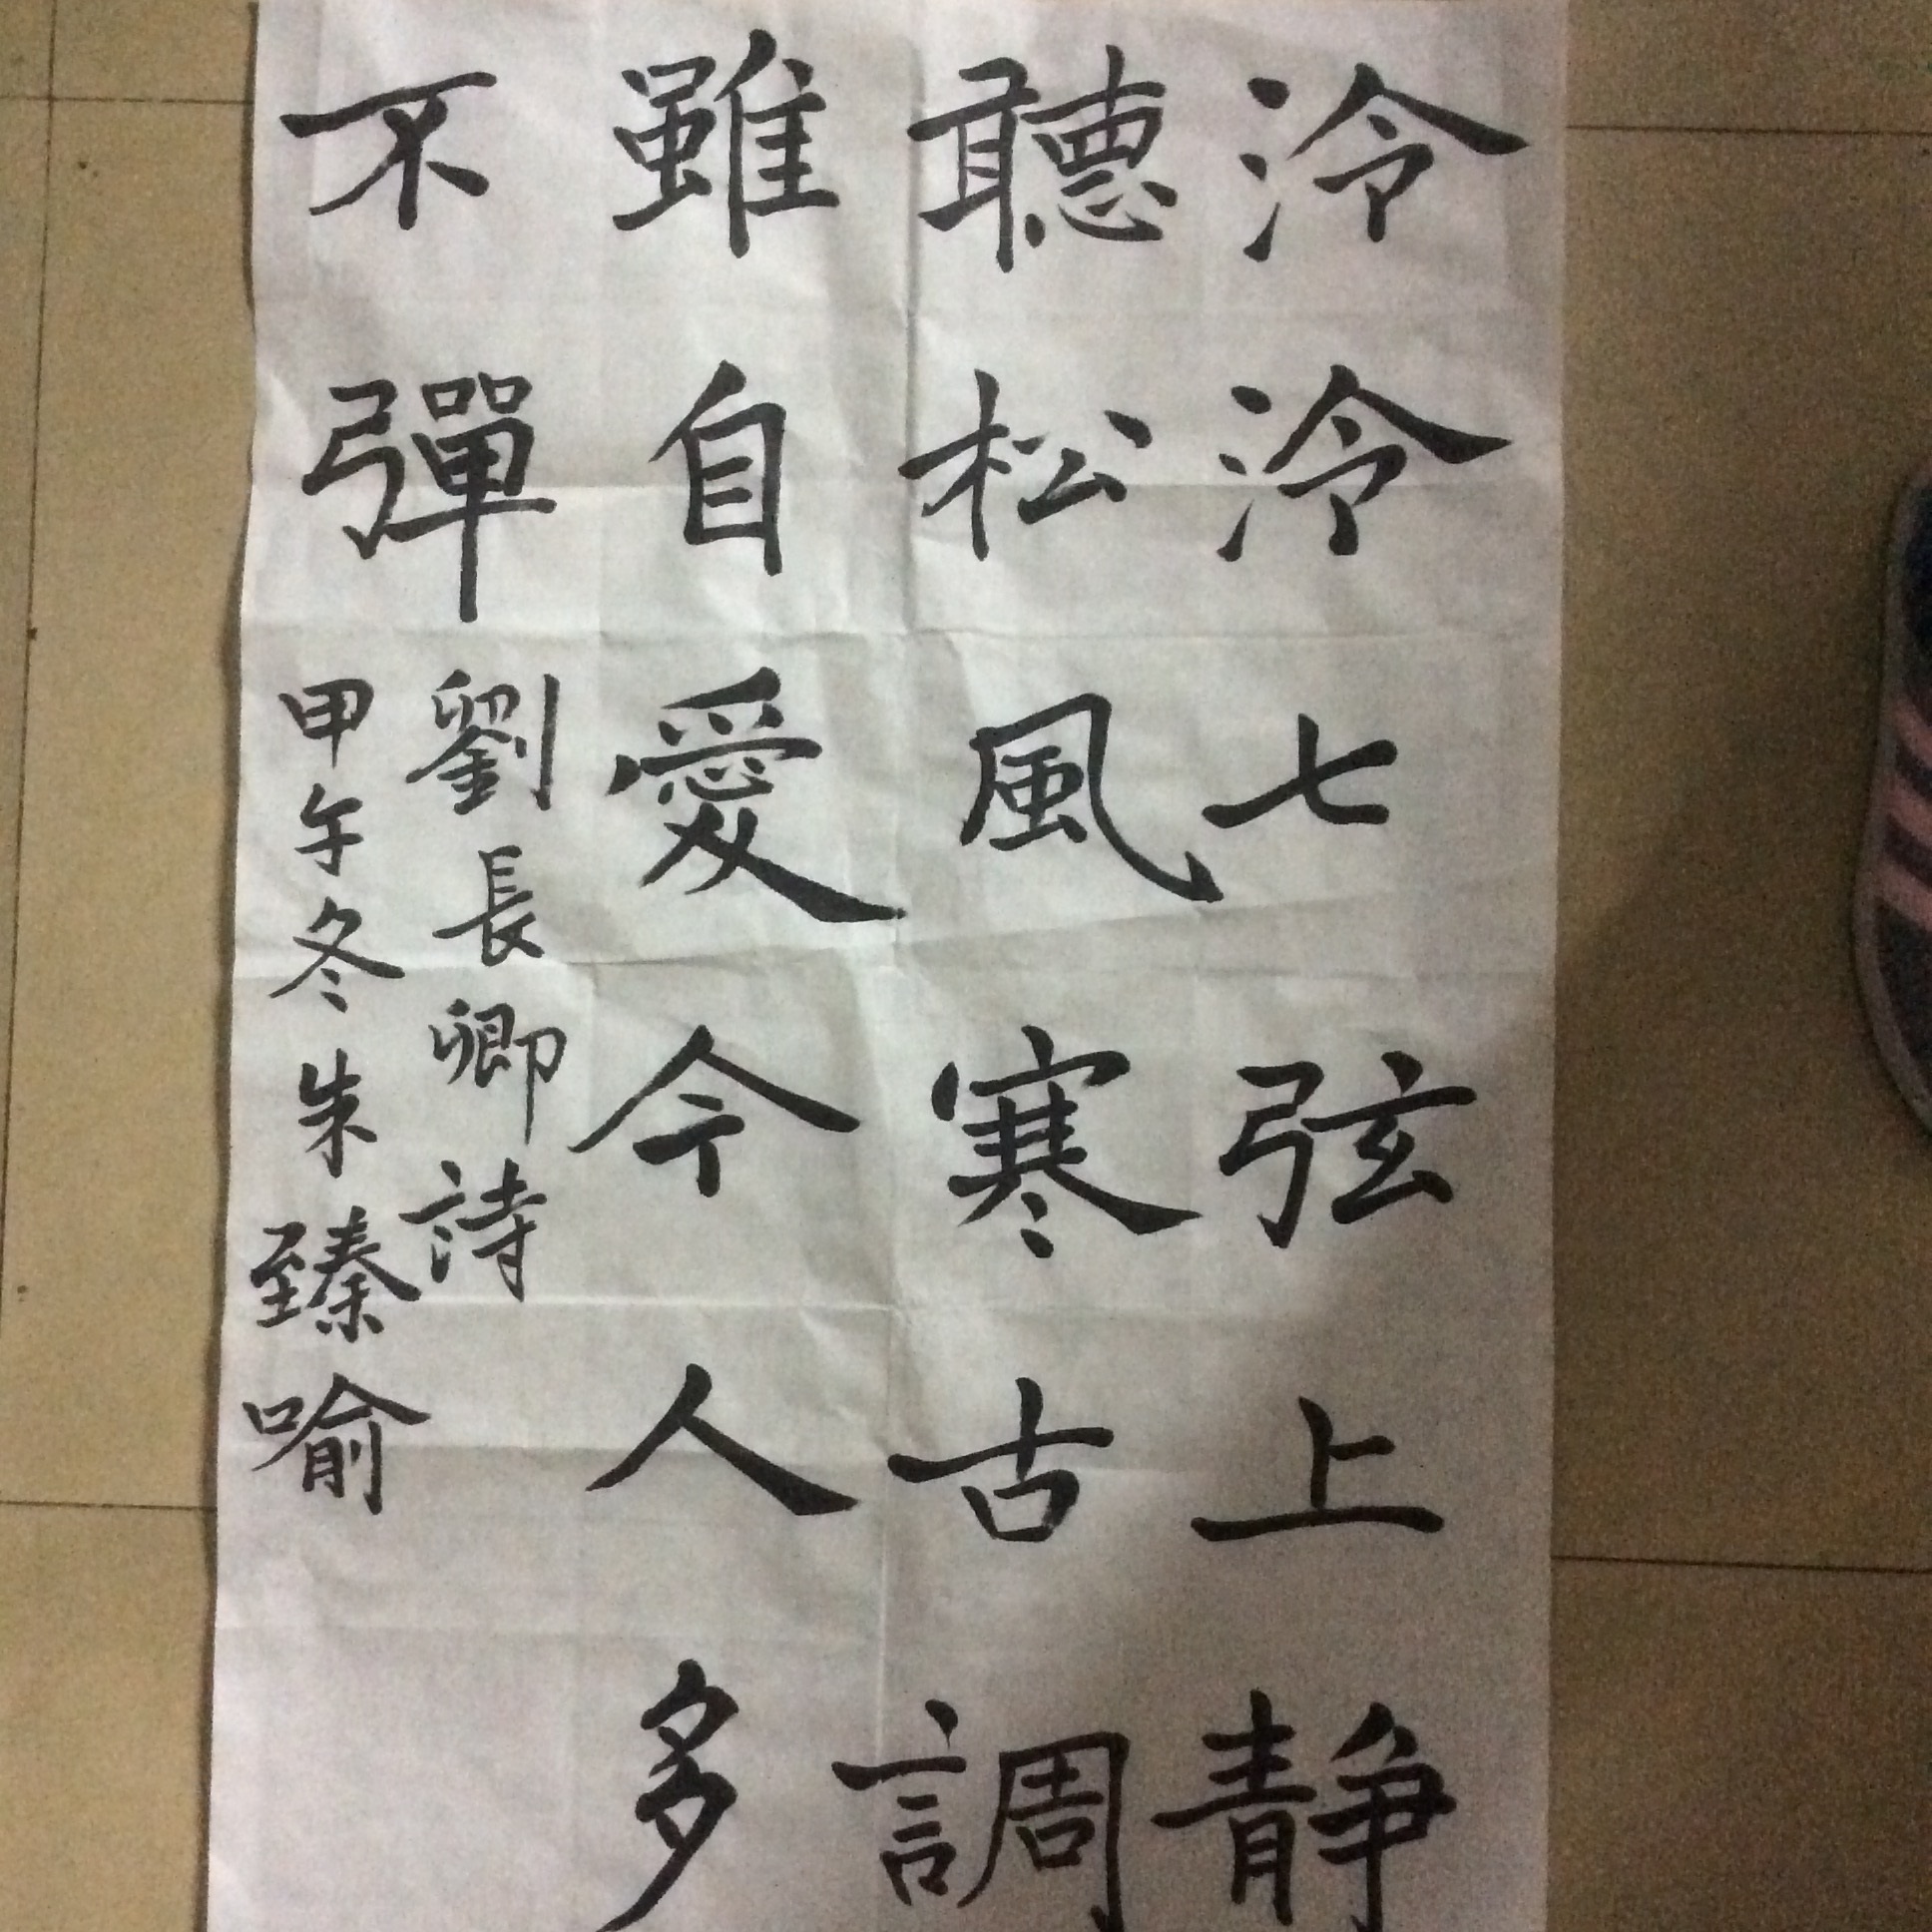 泠泠七弦上静
聽松風寒古調
雖自愛今人多
不彈
劉長卿詩
甲午冬朱臻喻